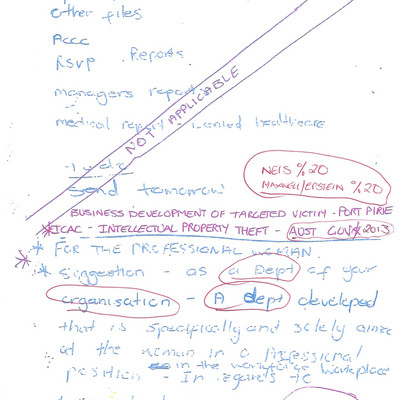 other files
ACCC
Reports
RSVP
managers report
medical report - denied healthcare
NOT APPLICABLE
Send tomorrow
NEIS %20
MAXWELL/EPSTEIN %20
BUSINESS DEVELOPMENT OF TARGETED VICTIM - PORT PIRIE
*ICAC - INTELLECTUAL PROPERTY THEFT - AUST GOVX 2013
* FOR THE PROFESSIONAL WOMAN.
* Suggestion - as a Dept of your
organisation - A dept developed
that is specifically and solely aimed
at the woman in a professional
in the workforce workplace
position - In regards to